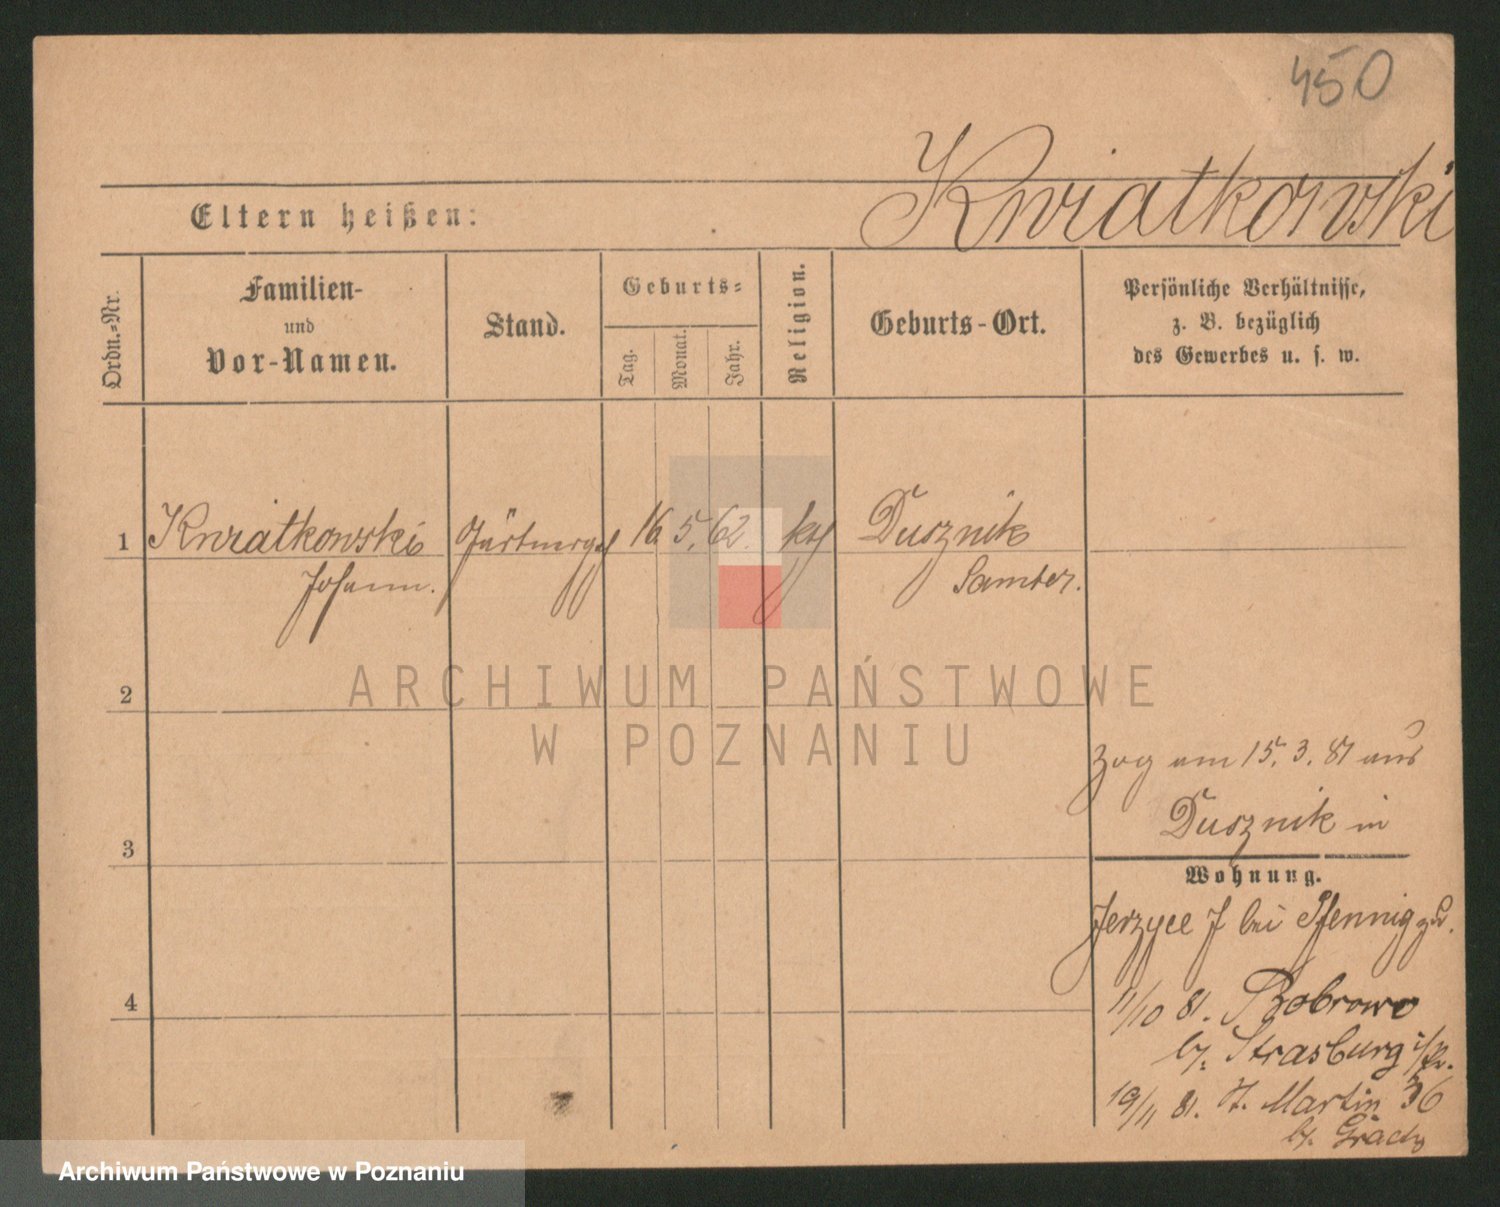 450
Kwiatkowski
Eltern heißen:
Ordn.-Nr.
Familien-
und
Vor-Namen.
Stand.
Geburts-
Tag.
Monat.
Jahr.
Religion.
Geburts-Ort.
Persönliche Verhältnisse,
z. B. bezüglich
des Gewerbes u. s. w.
1 Kwiatkowski 16 5. 62. kth Dusznik
Johann. Samter.
2
ARCHIWUM PAŃSTWOWE
W POZNANIU
zog am 15. 3. 81 aus
Dusznik in
3
Wohnung.
Jerzyce 7 bei Pfennig zu.
4
11/10 81. Bobrowo
b/. Strasburg i/Pr.
19/11 81. St. Martin 36
b/.
Archiwum Państwowe w Poznaniu